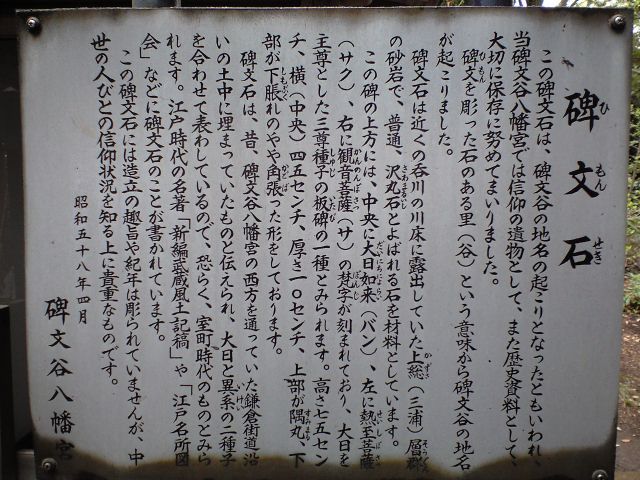 碑文石
ひもんせき
この碑文石は、碑文谷の地名の起こりとなったともいわれ、
当碑文谷八幡宮では信仰の遺物として、また歴史資料として、
大切に保存に努めてまいりました。
碑文を彫った石のある里(谷)という意味から碑文谷の地名
が起こりました。
碑文石は近くの呑川の川床に露出していた上総(三浦)層群
の砂岩で、普通、沢丸石とよばれる石を材料としています。
この碑の上方には、中央に大日如来(バン)、左に熱至菩薩
(サク)、右に観音菩薩(サ)の梵字が刻まれており、大日を
主尊とした三尊種子の板碑の一種とみられます。高さ七五セン
チ、横(中央)四五センチ、厚さ一〇センチ、上部が隅丸、下
部が下脹れのやや角張った形をしております。
碑文石は、昔、碑文谷八幡宮の西方を通っていた鎌倉街道沿
いの土中に埋まっていたものと伝えられ、大日と異系の二種子
を合わせて表わしているので、恐らく、室町時代のものとみら
れます。江戸時代の名著「新編武蔵風土記稿」や「江戸名所図
会」などに碑文石のことが書かれています。
この碑文石には造立の趣旨や紀年は彫られていませんが、中
世の人びとの信仰状況を知る上に貴重なものです。
昭和五十八年四月
碑文谷八幡宮